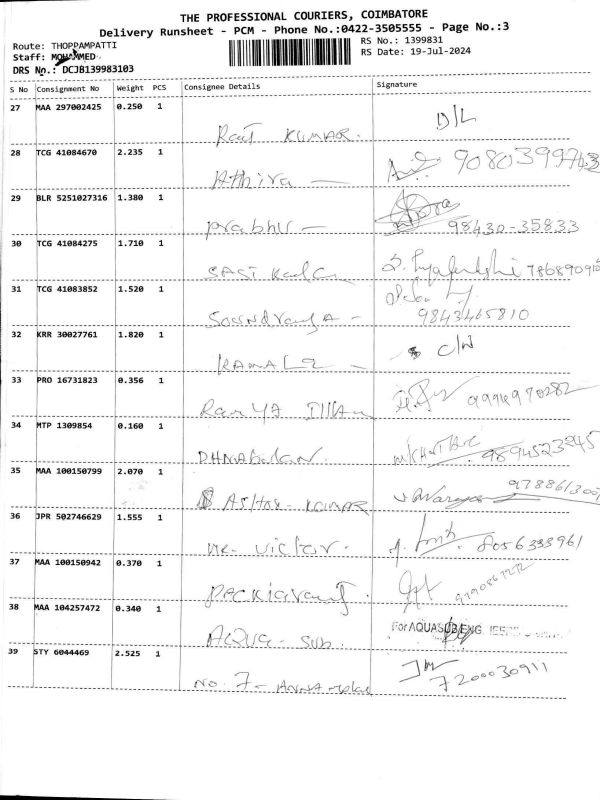 THE PROFESSIONAL COURIERS, COIMBATORE
Delivery Runsheet - PCM - Phone No.:0422-3505555 - Page No.:3
Route: THOPPAMPATTI
RS No.: 1399831
Staff: MOHAMMED
RS Date: 19-Jul-2024
DRS No.: DCJB139983103
S No Consignment No Weight PCS Consignee Details Signature
27 MAA 297002425 0.250 1 KUMAR. D/L
28 TCG 41084670 2.235 1 Athira 9080399743
29 BLR 5251027316 1.380 1 Prabhu - 98430-35833
30 TCG 41084275 1.710 1 SASI
31 TCG 41083852 1.520 1 Soundranya - 9843465810
32 KRR 30027761 1.820 1 C/W
33 PRO 16731823 0.356 1 Ramya 9994970282
34 MTP 1309854 0.160 1 9894523845
35 MAA 100150799 2.070 1 Ashok - Kumar
36 JPR 502746629 1.555 1 Mr. Victor. 8056333961
37 MAA 100150942 0.370 1
38 MAA 104257472 0.340 1 Aqua - Sub. For AQUASUB ENG
39 STY 6044469 2.525 1 No. 7 - Anna 7200030911